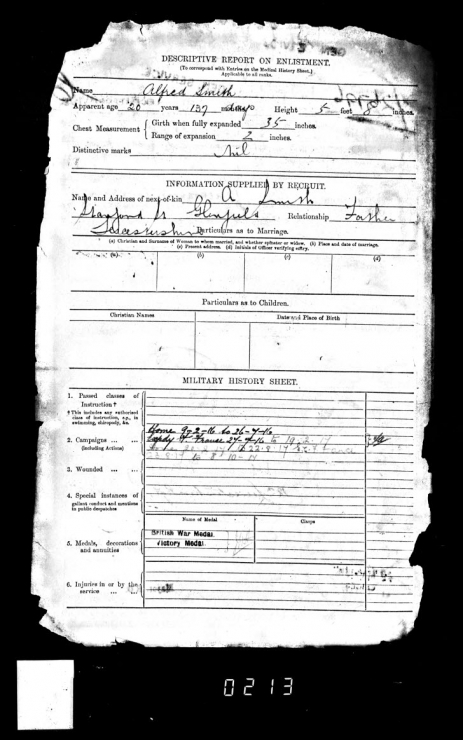 DESCRIPTIVE REPORT ON ENLISTMENT.
(To correspond with Entries on the Medical History Sheet.)
Applicable to all ranks.
Name Alfred Smith
Apparent age 20 years 137 days Height 5 feet 8 inches.
Chest Measurement { Girth when fully expanded 35 inches.
Range of expansion 2 inches.
Distinctive marks Nil
INFORMATION SUPPLIED BY RECRUIT.
Name and Address of next-of-kin A Smith
Stamford St Glenfield Relationship Father
Leicestershire Particulars as to Marriage.
(a) Christian and Surname of Woman to whom married, and whether spinster or widow. (b) Place and date of marriage.
(c) Present address. (d) Initials of Officer verifying entry.
(a) (b) (c) (d)
Particulars as to Children.
Christian Names Date and Place of Birth
MILITARY HISTORY SHEET.
1. Passed classes of
Instruction †
† This includes any authorised
class of instruction, e.g., in
swimming, chiropody, &c.
Home 9-2-16 to 26-7-16
2. Campaigns ... ... France 27-7-16 to
(including Actions)
3. Wounded ... ...
4. Special instances of
gallant conduct and mentions
in public despatches
Name of Medal Clasps
British War Medal
Victory Medal
5. Medals, decorations
and annuities
6. Injuries in or by the
service ... ...
0213